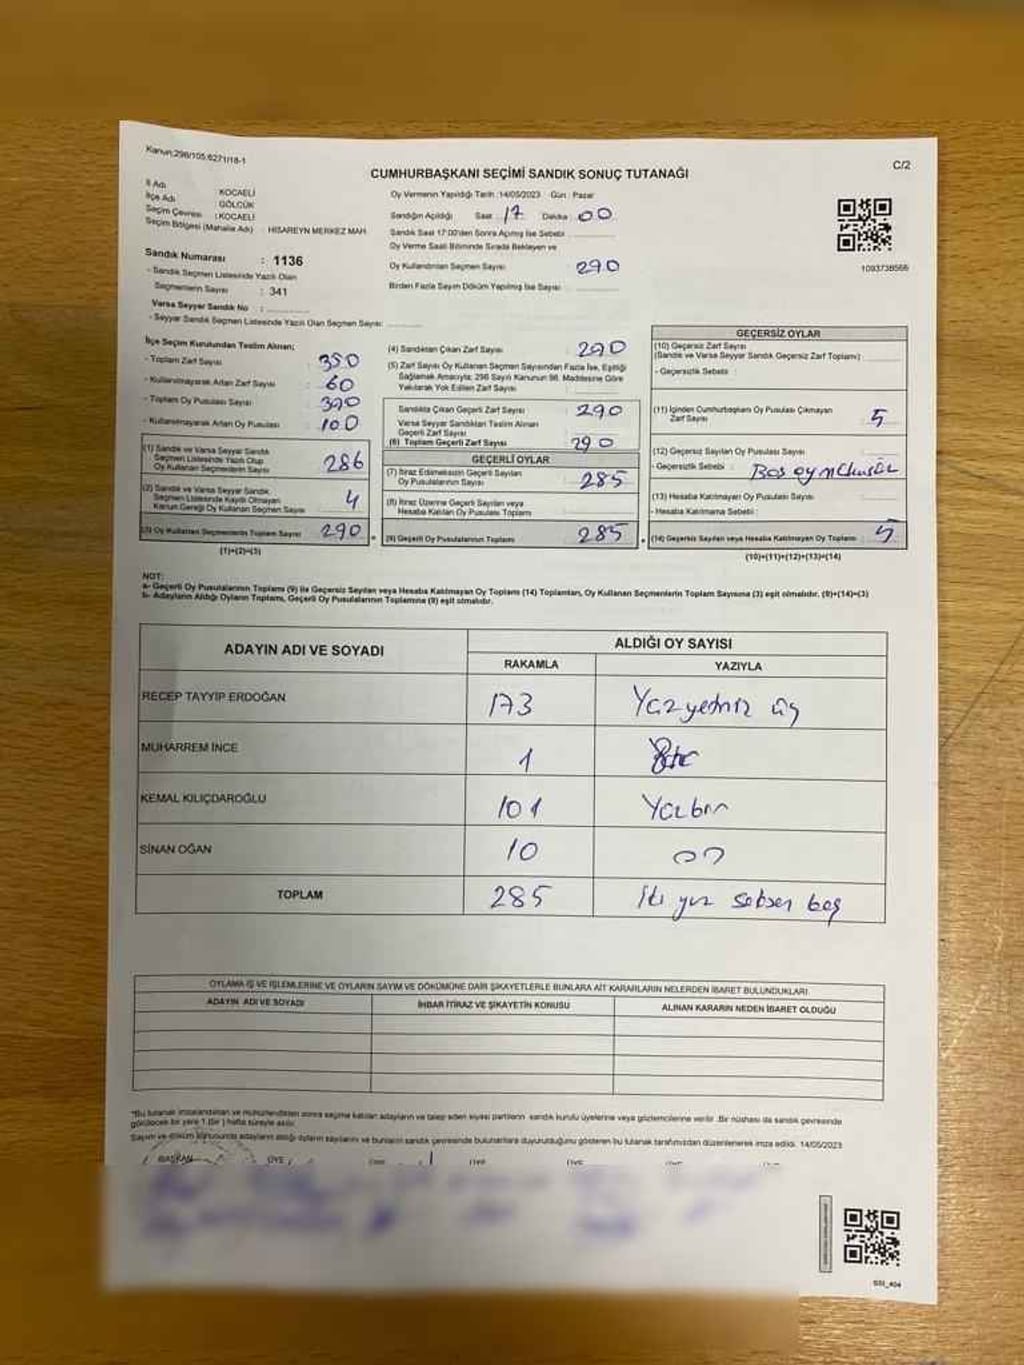 Kanun;298/105;6271/18-1
C/2
CUMHURBAŞKANI SEÇİMİ SANDIK SONUÇ TUTANAĞI
İl Adı : KOCAELİ
İlçe Adı : GÖLCÜK
Seçim Çevresi : KOCAELİ
Seçim Bölgesi (Mahalle Adı) : HİSAREYN MERKEZ MAH.
Sandık Numarası : 1136
- Sandık Seçmen Listesinde Yazılı Olan
Seçmenlerin Sayısı : 341
Varsa Seyyar Sandık No :
- Seyyar Sandık Seçmen Listesinde Yazılı Olan Seçmen Sayısı:
Oy Vermenin Yapıldığı Tarih :14/05/2023 Gün : Pazar
Sandığın Açıldığı Saat : 17 Dakika : 00
Sandık Saat 17:00'den Sonra Açılmış İse Sebebi :
Oy Verme Saati Bitiminde Sırada Bekleyen ve
Oy Kullandırılan Seçmen Sayısı : 290
Birden Fazla Sayım Döküm Yapılmış İse Sayısı :
1093738566
İlçe Seçim Kurulundan Teslim Alınan;
- Toplam Zarf Sayısı : 350
- Kullanılmayarak Artan Zarf Sayısı : 60
- Toplam Oy Pusulası Sayısı : 390
- Kullanılmayarak Artan Oy Pusulası : 100
(1) Sandık ve Varsa Seyyar Sandık
Seçmen Listesinde Yazılı Olup
Oy Kullanan Seçmenlerin Sayısı : 286
(2) Sandık ve Varsa Seyyar Sandık
Seçmen Listesinde Kayıtlı Olmayan
Kanun Gereği Oy Kullanan Seçmen Sayısı : 4
(3) Oy Kullanan Seçmenlerin Toplam Sayısı : 290
(1)+(2)=(3)
(4) Sandıktan Çıkan Zarf Sayısı : 290
(5) Zarf Sayısı Oy Kullanan Seçmen Sayısından Fazla İse, Eşitliği
Sağlamak Amacıyla; 298 Sayılı Kanunun 98. Maddesine Göre
Yakılarak Yok Edilen Zarf Sayısı :
Sandıkta Çıkan Geçerli Zarf Sayısı : 290
Varsa Seyyar Sandıktan Teslim Alınan
Geçerli Zarf Sayısı :
(6) Toplam Geçerli Zarf Sayısı : 290
GEÇERLİ OYLAR
(7) İtiraz Edilmeksizin Geçerli Sayılan
Oy Pusulalarının Sayısı : 285
(8) İtiraz Üzerine Geçerli Sayılan veya
Hesaba Katılan Oy Pusulası Toplamı :
(9) Geçerli Oy Pusulalarının Toplamı : 285
GEÇERSİZ OYLAR
(10) Geçersiz Zarf Sayısı
(Sandık ve Varsa Seyyar Sandık Geçersiz Zarf Toplamı) :
- Geçersizlik Sebebi :
(11) İçinden Cumhurbaşkanı Oy Pusulası Çıkmayan
Zarf Sayısı : 5
(12) Geçersiz Sayılan Oy Pusulası Sayısı :
- Geçersizlik Sebebi : Boş oy
(13) Hesaba Katılmayan Oy Pusulası Sayısı :
- Hesaba Katılmama Sebebi :
(14) Geçersiz Sayılan veya Hesaba Katılmayan Oy Toplamı : 5
(10)+(11)+(12)+(13)=(14)
NOT:
a- Geçerli Oy Pusulalarının Toplamı (9) ile Geçersiz Sayılan veya Hesaba Katılmayan Oy Toplamı (14) Toplamları, Oy Kullanan Seçmenlerin Toplam Sayısına (3) eşit olmalıdır. (9)+(14)=(3)
b- Adayların Aldığı Oyların Toplamı, Geçerli Oy Pusulalarının Toplamına (9) eşit olmalıdır.
ADAYIN ADI VE SOYADI ALDIĞI OY SAYISI
RAKAMLA YAZIYLA
RECEP TAYYİP ERDOĞAN 173 Yüzyetmiş üç
MUHARREM İNCE 1 Bir
KEMAL KILIÇDAROĞLU 101 Yüzbir
SİNAN OĞAN 10 on
TOPLAM 285 İki yüz seksen beş
OYLAMA İŞ VE İŞLEMLERİNE VE OYLARIN SAYIM VE DÖKÜMÜNE DAİR ŞİKAYETLERLE BUNLARA AİT KARARLARIN NELERDEN İBARET BULUNDUKLARI
ADAYIN ADI VE SOYADI İHBAR İTİRAZ VE ŞİKAYETİN KONUSU ALINAN KARARIN NEDEN İBARET OLDUĞU
*Bu tutanak imzalandıktan ve mühürlendikten sonra seçime katılan adayların ve talep eden siyasi partilerin sandık kurulu üyelerine veya gözlemcilerine verilir. Bir nüshası da sandık çevresinde
görülecek bir yere 1 (Bir) hafta süreyle asılır.
Sayım ve döküm sonucunda adayların aldığı oyların sayılarını ve bunların sandık çevresinde bulunanlara duyurulduğunu gösteren bu tutanak tarafımızdan düzenlenerek imza edildi. 14/05/2023
BAŞKAN ÜYE ÜYE ÜYE ÜYE ÜYE